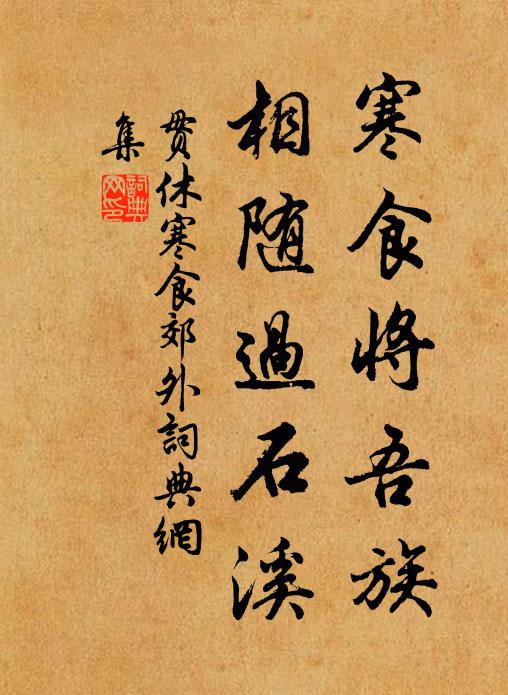 寒食将吾族
相随過石溪
贯休寒食郊外詞典網
集
詞典网印